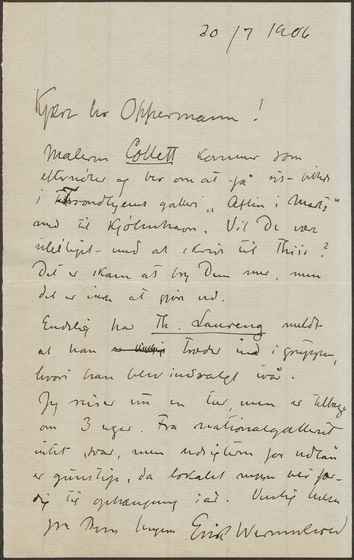 20/7 1906
Kjære hr Oppermann!
Maleren Collett kommer som
efternøler og ber om at få sit billede
i Trondhjems galleri „Aften i Marts"
med til Kjøbenhavn. Vil De være
så at skrive til Thiis?
Det er skam at bry Dem mer, men
det er ikke at gjøre ved.
Endelig har Th. Laureng meldt
at han træder ind i gruppen,
hvori han blev indvalgt iår.
Jeg reiser nu en tur, men er tilbage
om 3 uger. Fra nationalgalleriet
intet svar, men udsigterne for udlån
er gunstige, da lokalet neppe blir fær-
dig til ophængning iår. Venlig hilsen
fra Deres Erik Werenskiold